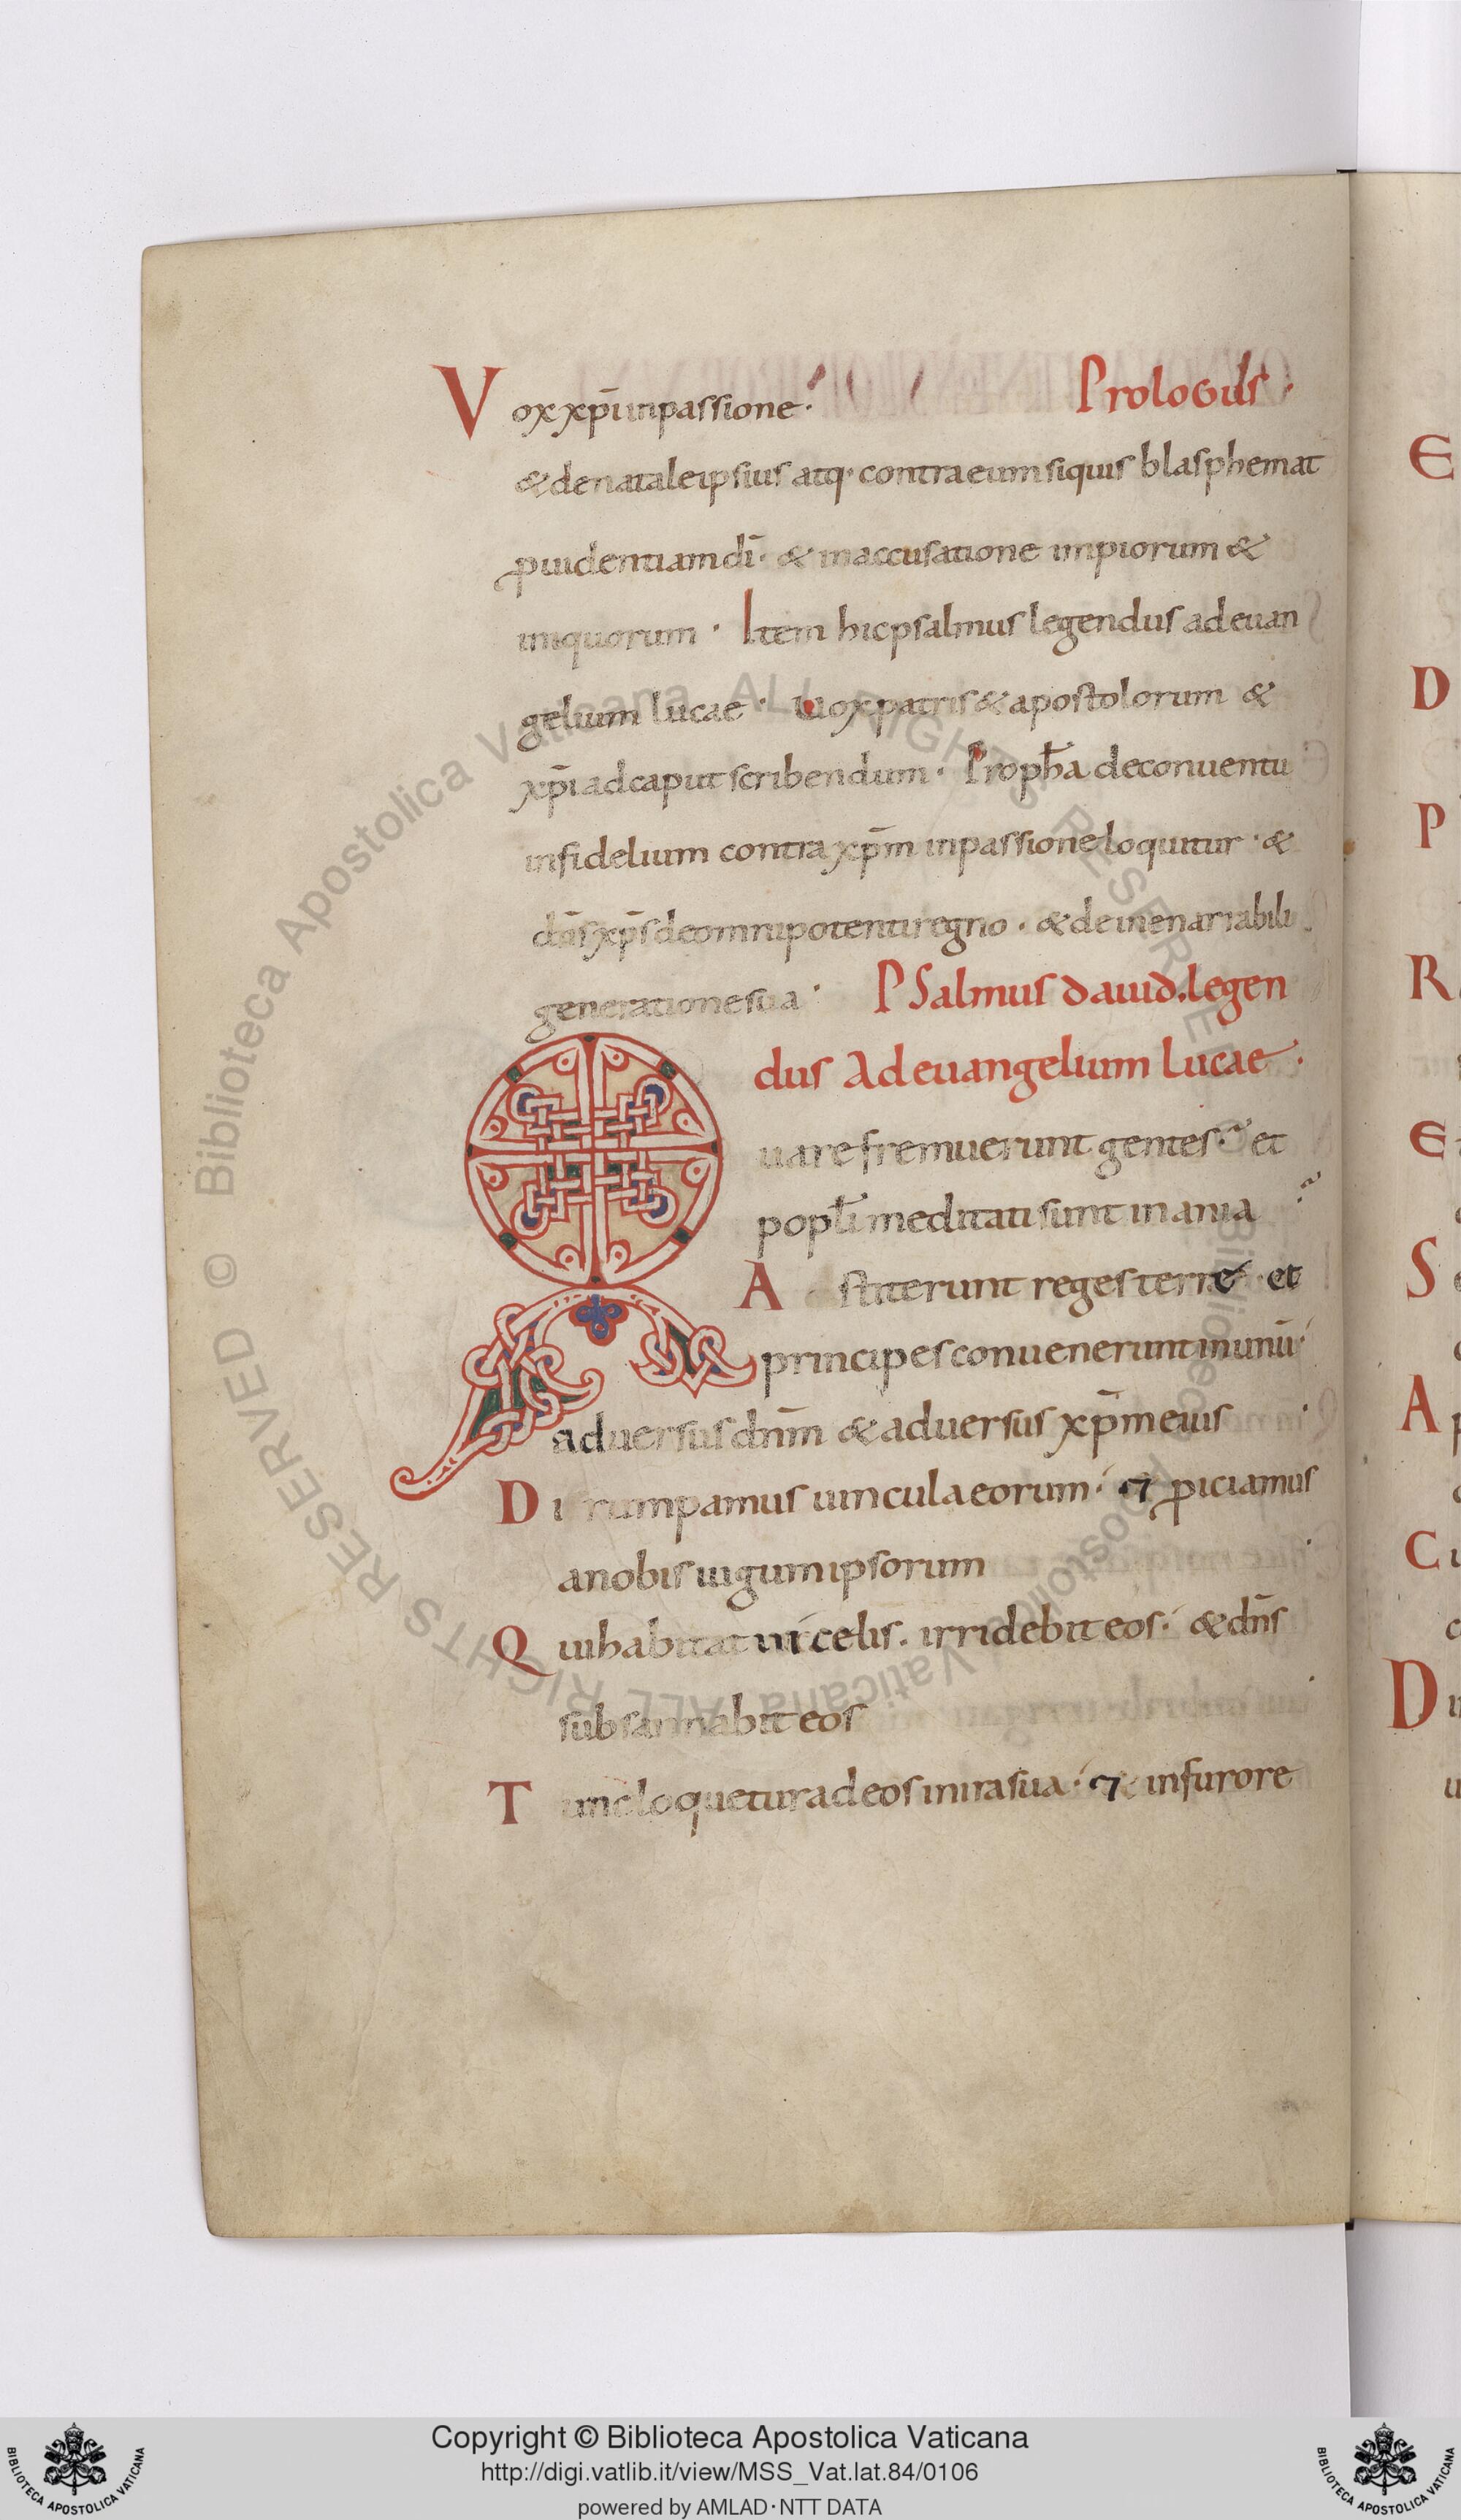 Vox xp̄i in passione· Prologus·
& de natale ipsius atq· contra eum siquis blasphemat
ꝓuidentiam dī· & in accusatione impiorum &
iniquorum · Item hic psalmus legendus ad euan
gelium lucae · uox patris & apostolorum &
xp̄i ad caput scribendum · Proph̄a de conuentu
infidelium contra xp̄m in passione loquitur · &
dn̄s xp̄s de omnipotenti regno · & de inenarrabili
generatione sua · PSalmus dauid. legen
dus Ad euangelium Lucae ·
Quare fremuerunt gentes · et
popl̄i meditati sunt inania
Astiterunt reges terrę · et
principes conuenerunt in unū·
aduersus dn̄m & aduersus xp̄m eius
Dirumpamus uincula eorum · ⁊ ꝓiciamus
a nobis iugum ipsorum
Qui habitat in celis . irridebit eos · & dn̄s
subsannabit eos
Tunc loquetur ad eos in ira sua · ⁊ in furore
E
D
P
R
E
S
A
C
D
© Biblioteca Apostolica Vaticana ALL RIGHTS RESERVED
© Biblioteca Apostolica Vaticana ALL RIGHTS RESERVED
Copyright © Biblioteca Apostolica Vaticana
http://digi.vatlib.it/view/MSS_Vat.lat.84/0106
powered by AMLAD·NTT DATA
BIBLIOTECA APOSTOLICA VATICANA
BIBLIOTECA APOSTOLICA VATICANA